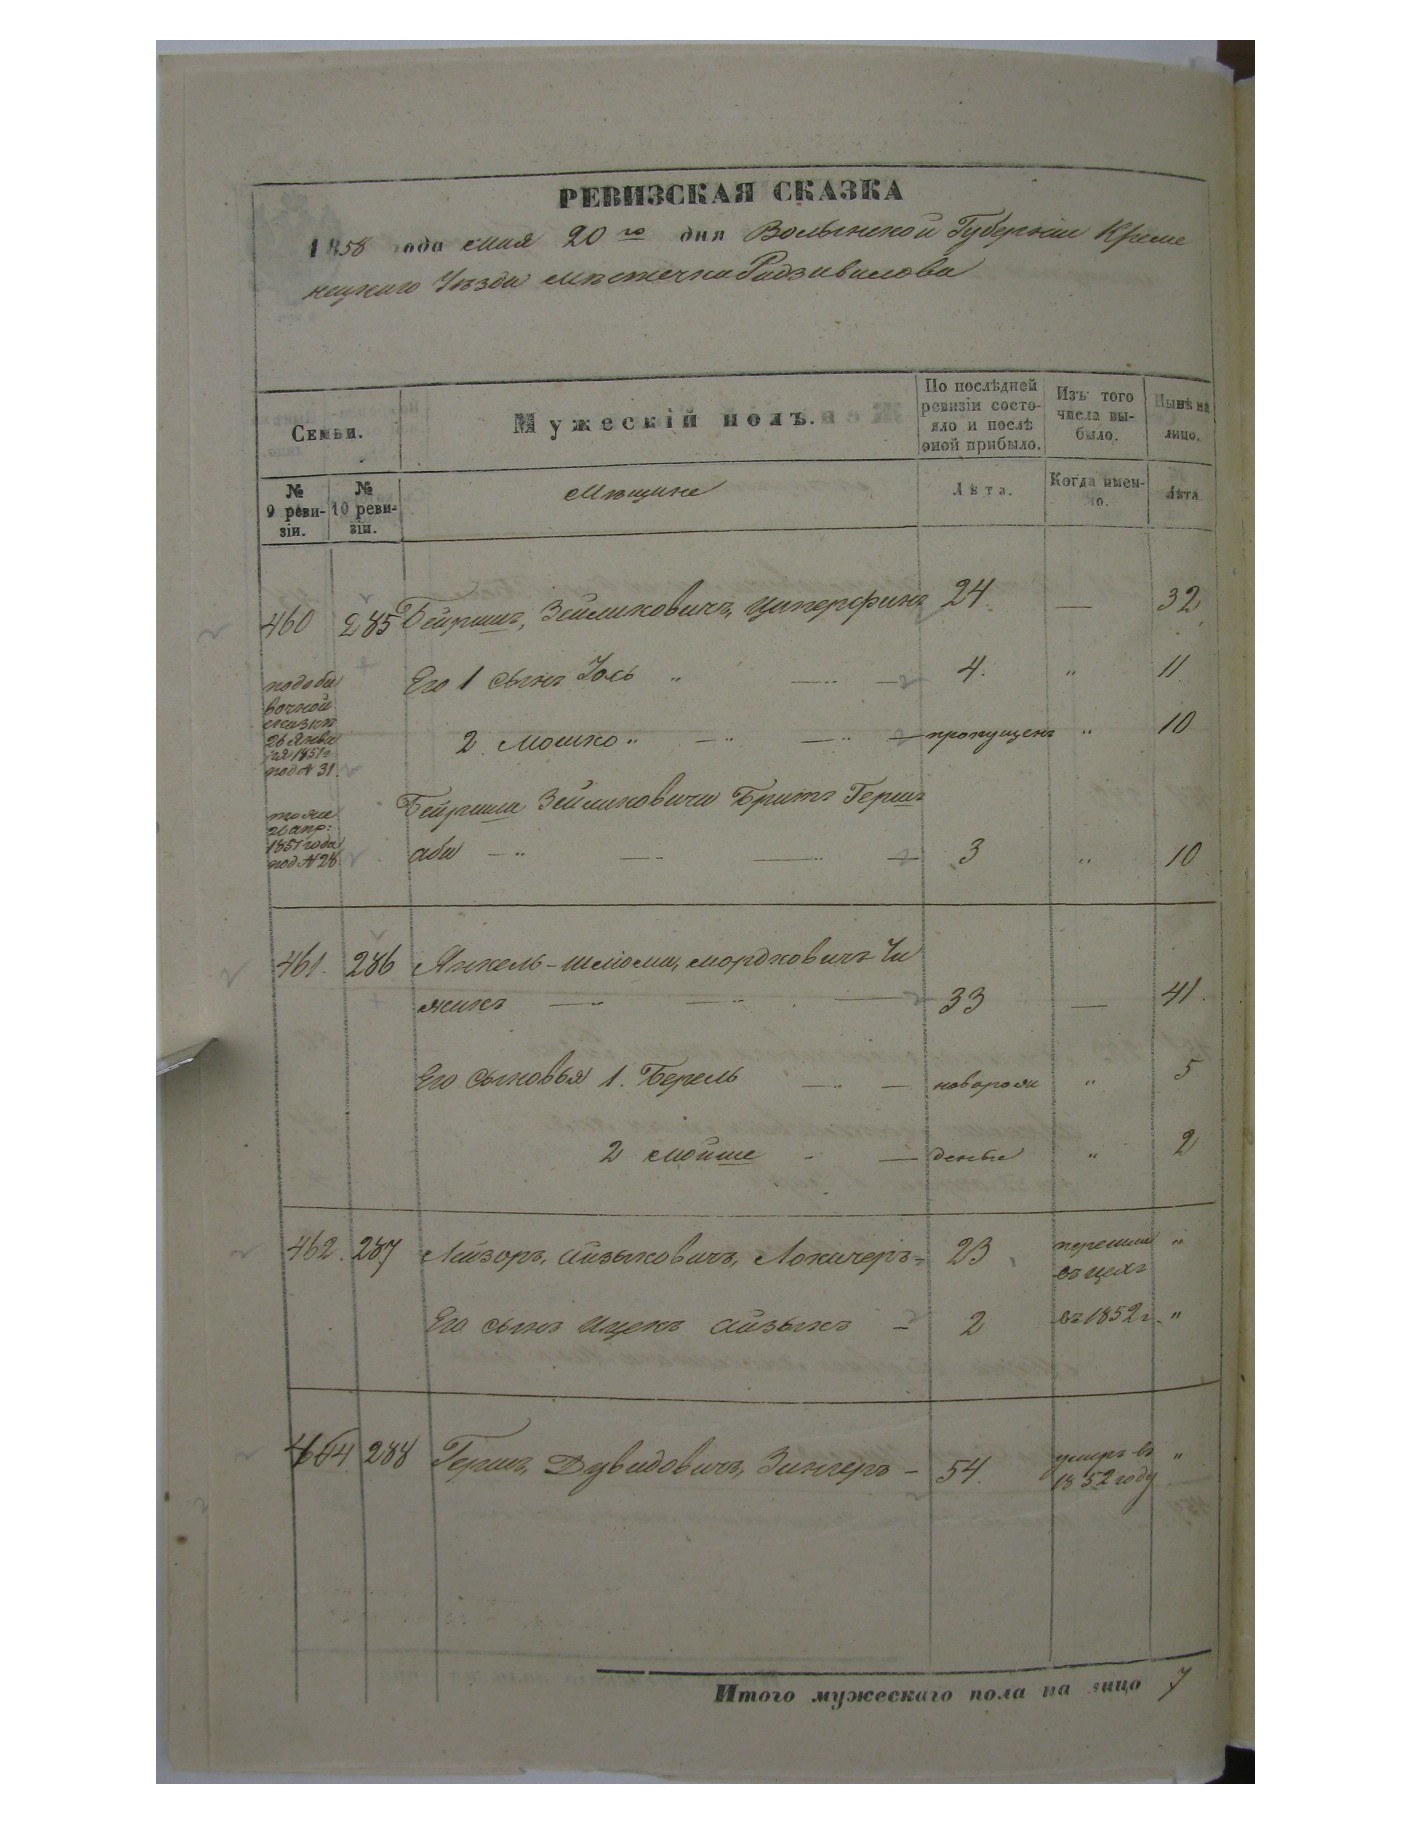 РЕВИЗСКАЯ СКАЗКА
1858 года мая 20го дня Волынской Губерніи Креме
нецкаго Уѣзда мѣстечка Радзивилова
Семьи.
Мужескій полъ.
По послѣдней ревизіи состо-
яло и послѣ оной прибыло.
Изъ того числа вы-
было.
Нынѣ на лицо.
№ 9 реви-
зіи.
№ 10 реви-
зіи.
Мѣщане
Лѣта.
Когда имен-
но.
Лѣта
460 285 Бейришъ, Зейликовичъ, Циперфинъ 24 — 32
подоба
вочной
сказкѣ
26 Янва
ря 1851 г
под № 31.
Его 1 сынъ Іось " 4. " 11
2. Мошко " пропущенъ " 10
тоже
26 апр:
1851 года
под № 28
Бейриша Зейликовича Братъ Герш
аба 3 " 10
461. 286 Янкель-шлiома, мордковичъ Чи
жикъ 33 — 41.
Его сыновья 1. Берель новорож " 5
2 мойше — денные " 2
462. 287 Лейзоръ, Айзыковичъ, Локачеръ 23 перешли
въ цехъ "
Его сынъ Ицекъ Айзыкъ — 2 въ 1852 г. "
464 288 Герш, Дувидовичъ, Зингеръ — 54. умеръ въ
1852 году "
Итого мужескаго пола на лицо 7